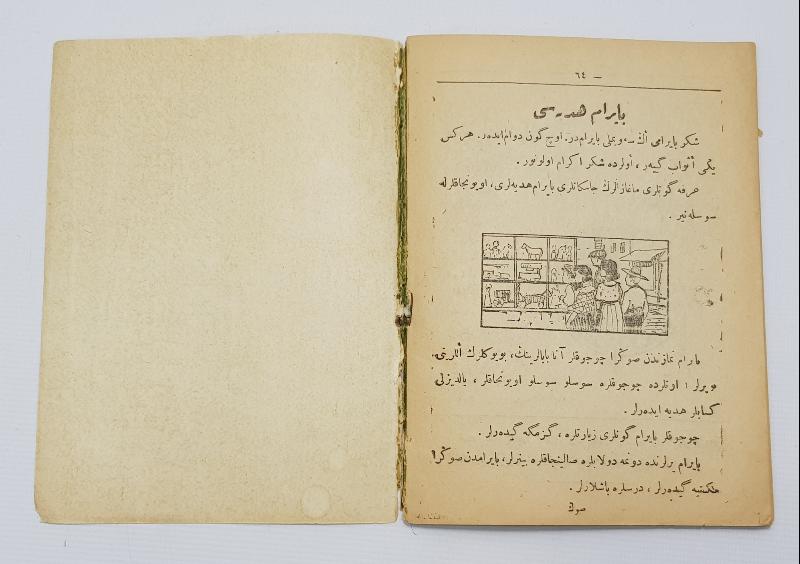 – ٦٤
بايرام هديه‌سى
شكر بايرامى اڭ سه‌ويملى بايرامدر. اوچ گون دوام ايده‌ر. هركس
يڭى أثواب گييه‌ر ، أولرده شكر اكرام اولونور .
عرفه گونلرى مغازالرڭ جامكانلرى بايرام هديه‌لرى، اويونجاقلرله
سوسله‌نير .
بايرام نمازندن صوڭرا چوجوقلر آنا بابالرينڭ، بويوكلرڭ أللرينى
اوپرلر ؛ اونلرده چوجوقلره سوسلو سوسلو اويونجاقلر ، يالديزلى
كتابلر هديه ايده‌رلر .
چوجوقلر بايرام گونلرى زيارتلره ، گزمگه گيده‌رلر .
بايرام يرلرنده دونمه دولابلره صالينجاقلره بينرلر، بايرامدن صوڭرا
مكتبه گيده‌رلر ، درسلره باشلارلر .
صوڭ